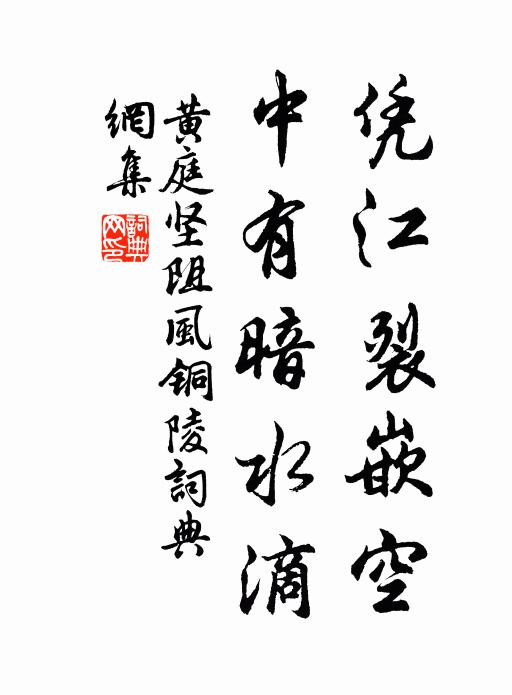 凭江裂嵌空
中有暗水滴
黄庭坚阻風铜陵詞典
網集
詞典网印